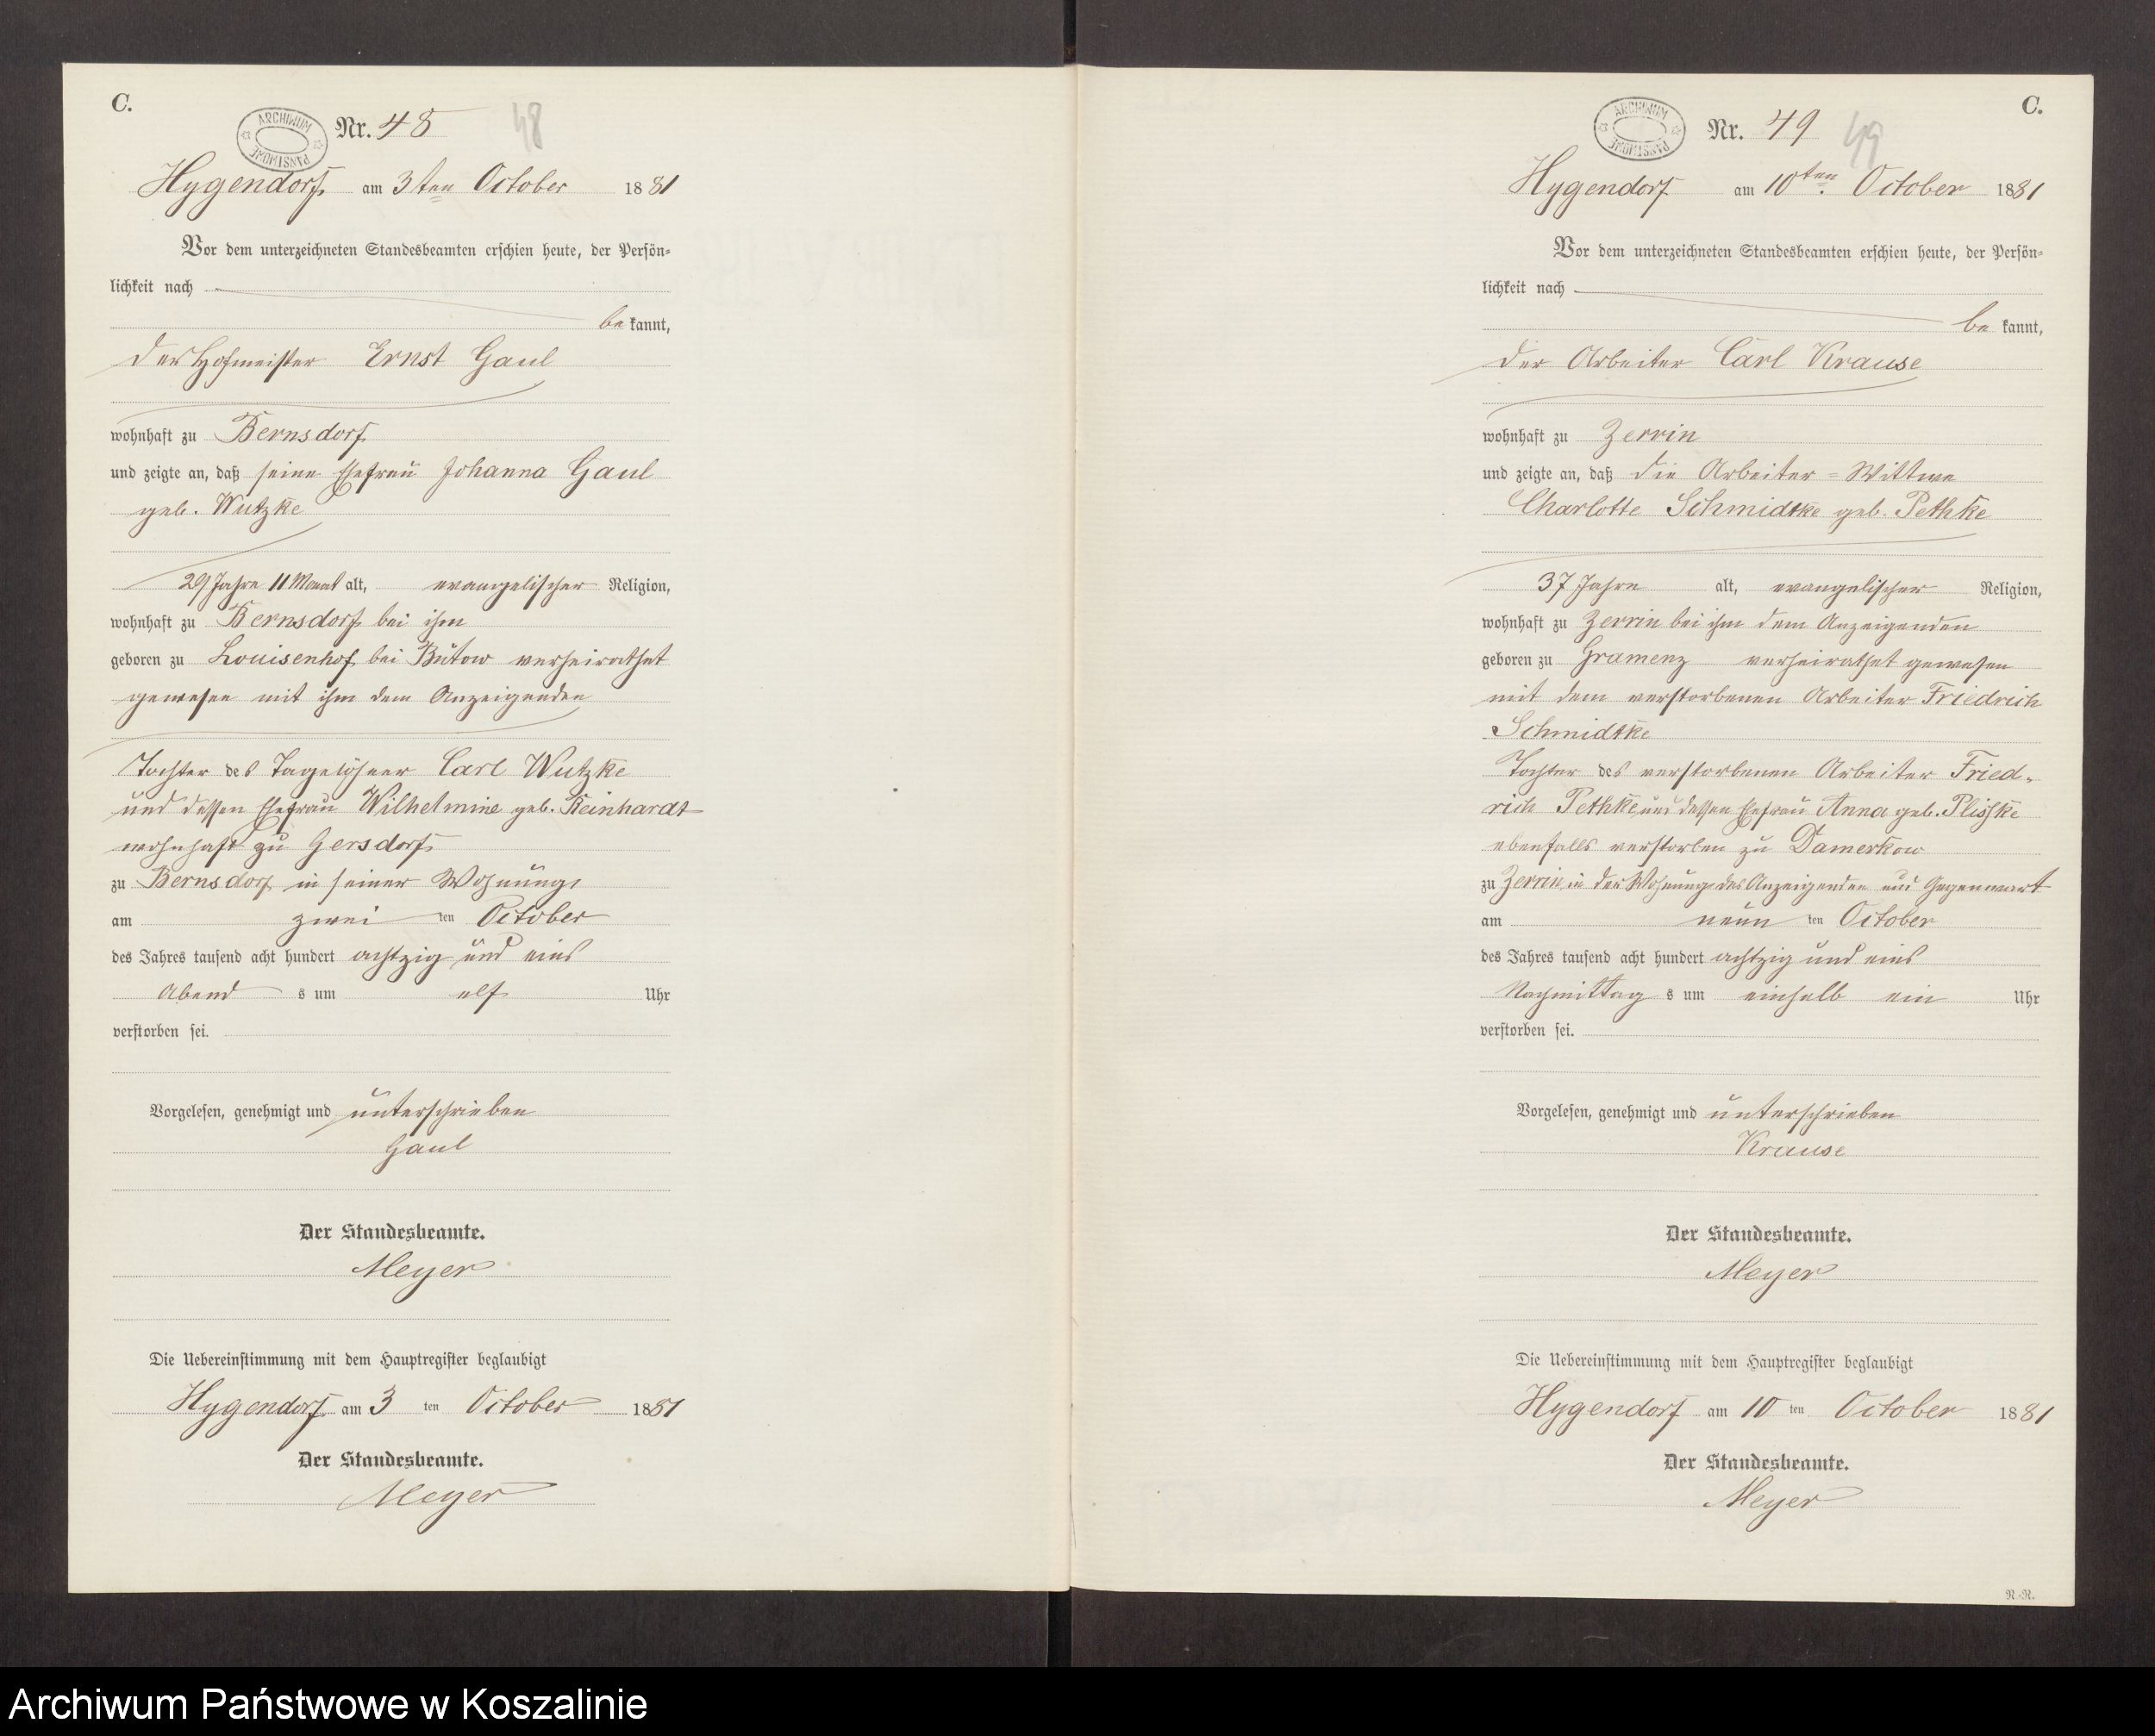 C.
ARCHIWUM
PAŃSTWOWE
Nr. 48
48
Hygendorf am 3ten October 1881
Vor dem unterzeichneten Standesbeamten erschien heute, der Persön=
lichkeit nach
be kannt,
der Hofmeister Ernst Gaul
wohnhaft zu Bernsdorf
und zeigte an, daß seine Ehefrau Johanna Gaul
geb. Wutzke
29 Jahre 11 Monat alt, evangelischer Religion,
wohnhaft zu Bernsdorf bei ihm
geboren zu Louisenhof bei Bütow verheirathet
gewesen mit ihm dem Anzeigenden
Tochter des Tagelöhner Carl Wutzke
und dessen Ehefrau Wilhelmine geb. Reinhardt
wohnhaft zu Gersdorf
zu Bernsdorf in seiner Wohnung,
am zwei ten October
des Jahres tausend acht hundert achtzig und eins
Abend s um elf Uhr
verstorben sei.
Vorgelesen, genehmigt und unterschrieben
Gaul
Der Standesbeamte.
Meyer
Die Uebereinstimmung mit dem Hauptregister beglaubigt
Hygendorf am 3 ten October 1881
Der Standesbeamte.
Meyer
C.
ARCHIWUM
PAŃSTWOWE
Nr. 49
49
Hygendorf am 10ten October 1881
Vor dem unterzeichneten Standesbeamten erschien heute, der Persön=
lichkeit nach
be kannt,
der Arbeiter Carl Krause
wohnhaft zu Zerrin
und zeigte an, daß die Arbeiter=Wittwe
Charlotte Schmidtke geb. Pethke
37 Jahre alt, evangelischer Religion,
wohnhaft zu Zerrin bei ihm dem Anzeigenden
geboren zu Gramenz verheirathet gewesen
mit dem verstorbenen Arbeiter Friedrich
Schmidtke
Tochter des verstorbenen Arbeiter Fried-
rich Pethke und dessen Ehefrau Anna geb. Plischke
ebenfalls verstorben zu Damerkow
zu Zerrin in der Wohnung des Anzeigenden und Gegenwart
am neun ten October
des Jahres tausend acht hundert achtzig und eins
Nachmittag s um einhalb ein Uhr
verstorben sei.
Vorgelesen, genehmigt und unterschrieben
Krause
Der Standesbeamte.
Meyer
Die Uebereinstimmung mit dem Hauptregister beglaubigt
Hygendorf am 10 ten October 1881
Der Standesbeamte.
Meyer
R.-R.
Archiwum Państwowe w Koszalinie